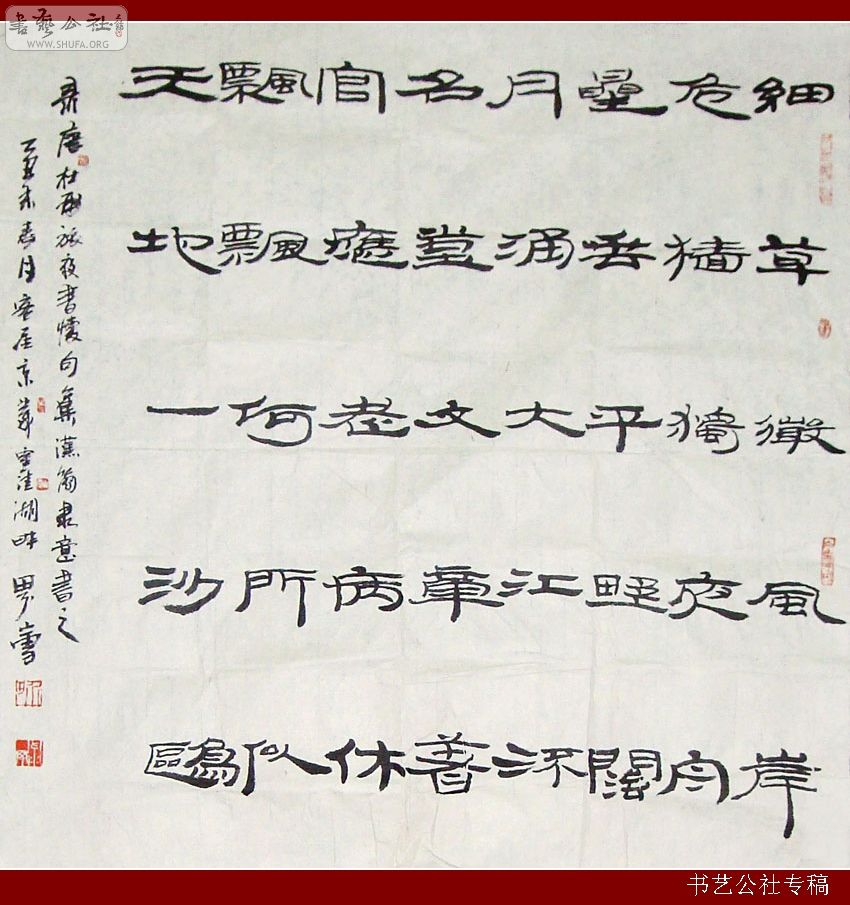 書藝公社
WWW.SHUFA.ORG
細草微風岸
危檣獨夜舟
星垂平野闊
月涌大江流
名豈文章著
官應老病休
飄飄何所似
天地一沙鷗
录唐杜甫旅夜書懷句集漢簡隶意書之
春月客居京華湖畔
书艺公社专稿